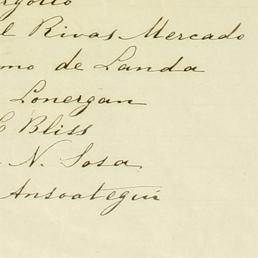 l Rivas Mercado
mo de Landa
Lonergan
C Bliss
N. Sosa
Ansoategui